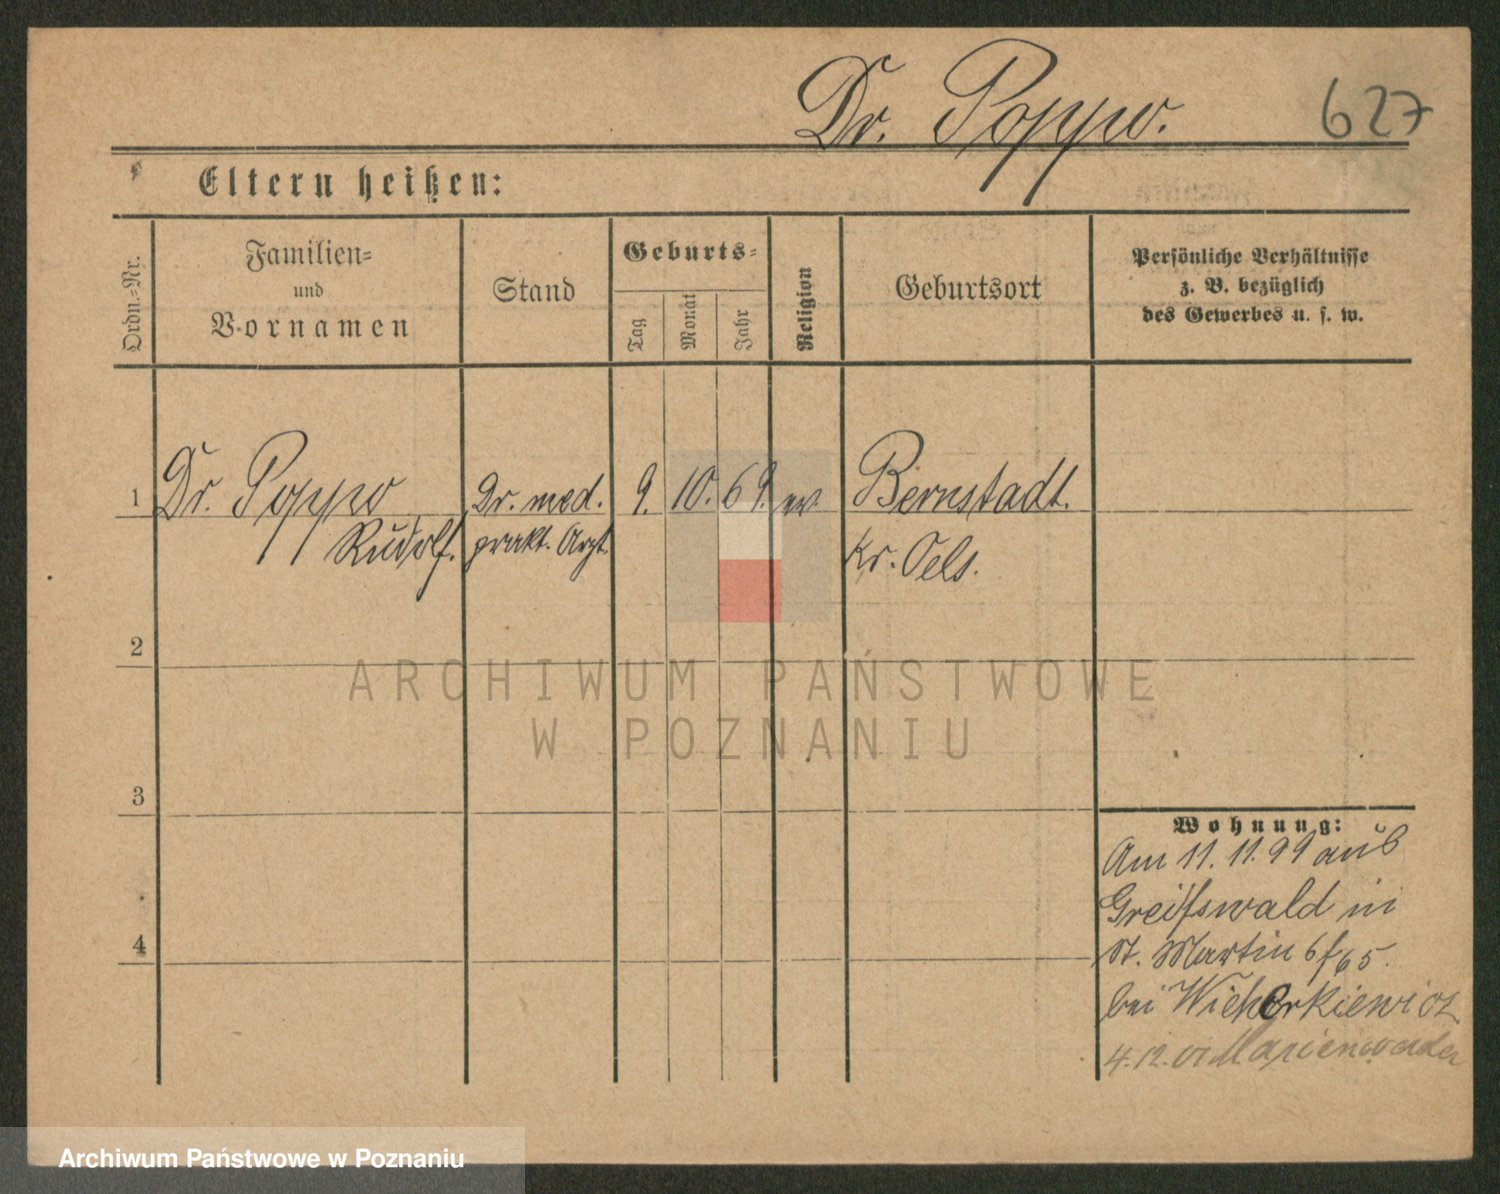 Dr. Poppo.
627
Eltern heißen:
Ordn.-Nr.
Familien-
und
Vornamen
Stand
Geburts-
Tag
Monat
Jahr
Religion
Geburtsort
Persönliche Verhältnisse
z. B. bezüglich
des Gewerbes u. s. w.
1 Dr. Poppo Dr. med. 9. 10. 69. ev Bernstadt.
Rudolf. prakt. Arzt. Kr. Oels.
2
3
4
Wohnung:
Am 11. 11. 99 aus
Greifswald in
St. Martin 65.
bei Wicherkiewicz
4.12. Marienwerder
ARCHIWUM PAŃSTWOWE
W POZNANIU
Archiwum Państwowe w Poznaniu